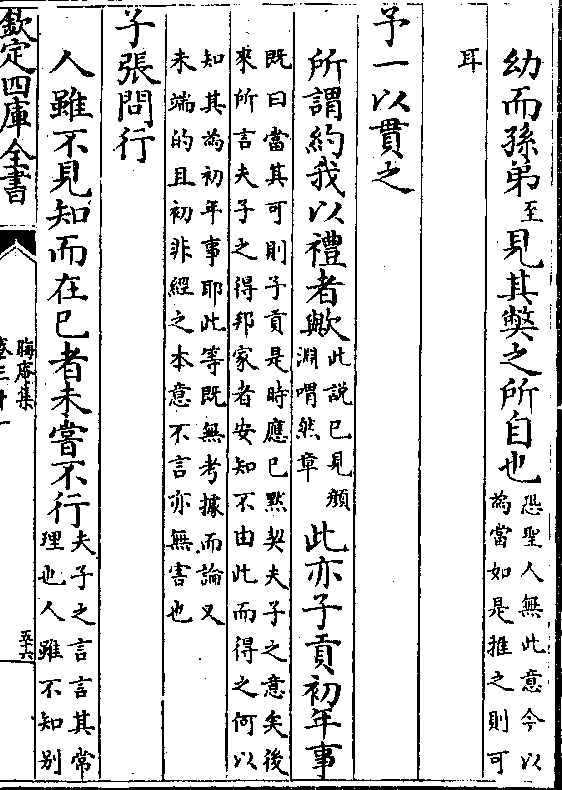 幼而孫弟至見其弊之所自也恐聖人無此意今以
為當如是推之則可
耳
予一以貫之
所謂約我以禮者歟此説已見顔
淵喟然章此亦子貢初年事
既曰當其可則子貢是時應已黙契夫子之意矣後
來所言夫子之得邦家者安知不由此而得之何以
知其為初年事耶此等既無考據而論又
未端的且初非經之本意不言亦無害也
子張問行
人雖不見知而在已者未嘗不行夫子之言言其常
理也人雖不知别
欽定四庫全書
晦庵集
卷三十一
五十六